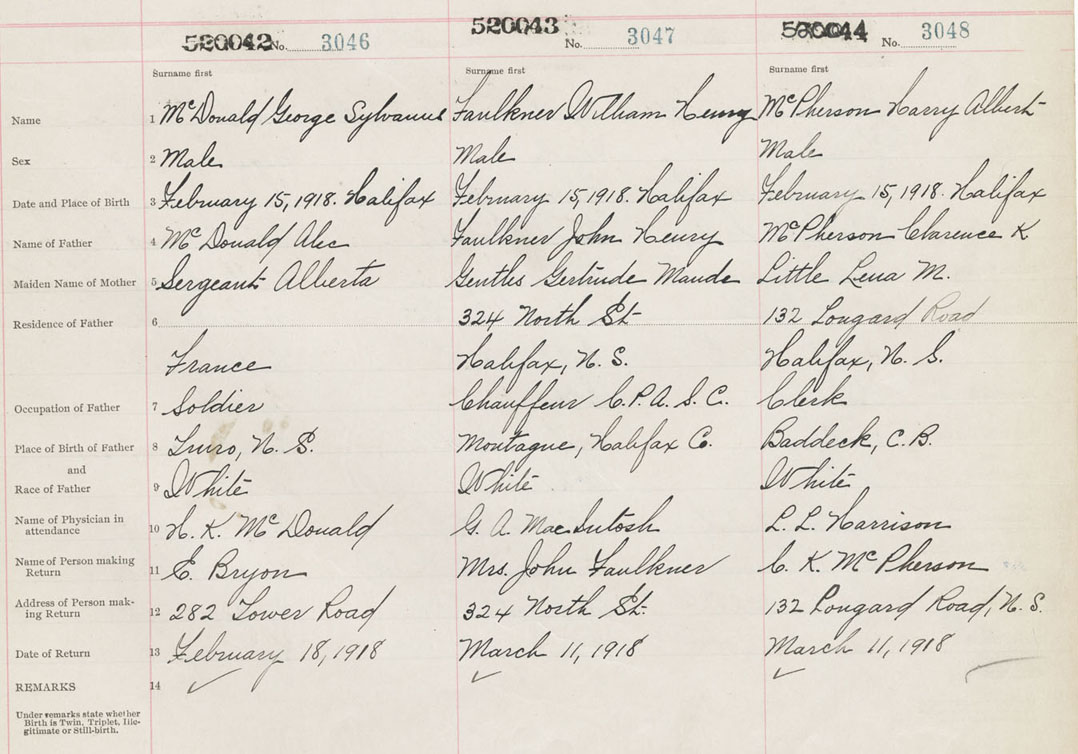 520042 No. 3046 520043 No. 3047 520044 No. 3048
Surname first Surname first Surname first
Name 1 McDonald George Sylvanus Faulkner William Henry McPherson Harry Albert
Sex 2 Male Male Male
Date and Place of Birth 3 February 15, 1918. Halifax February 15, 1918. Halifax February 15, 1918. Halifax
Name of Father 4 McDonald Alec Faulkner John Henry McPherson Clarence K
Maiden Name of Mother 5 Sergeant Alberta Gentles Gertrude Maude Little Lena M.
Residence of Father 6 324 North St. 132 Longard Road
France Halifax, N. S. Halifax, N. S.
Occupation of Father 7 Soldier Chauffeur C.P.A.S.C. Clerk
Place of Birth of Father 8 Truro, N. S. Montague, Halifax Co. Baddeck, C. B.
and
Race of Father 9 White White White
Name of Physician in attendance 10 H. K. McDonald G. A. MacIntosh L. L. Harrison
Name of Person making Return 11 E. Bryon Mrs. John Faulkner C. K. McPherson
Address of Person mak-
ing Return 12 282 Tower Road 324 North St. 132 Longard Road, N. S.
Date of Return 13 February 18, 1918 March 11, 1918 March 11, 1918
REMARKS 14
Under remarks state whether
Birth is Twin, Triplet, Ille-
gitimate or Still-birth.